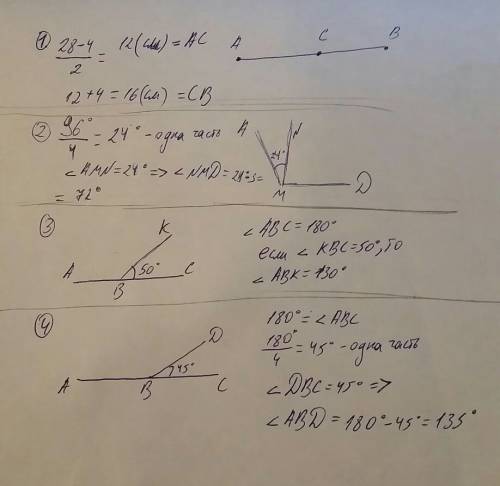 1 28-4/2 = 12(см) = AC
A C B
12+4 = 16(см) = CB
2 96°/4 = 24° - одна часть
∠AMN=24° => ∠NMD=24°·3=
= 72°
A N
24°
M D
3 ∠ABC=180°
если ∠KBC=50°, то
∠ABK=130°
K
A 50° C
B
4 180° = ∠ABC
180°/4 = 45° - одна часть
∠DBC=45° =>
∠ABD=180°-45°=135°
D
A 45°
B C